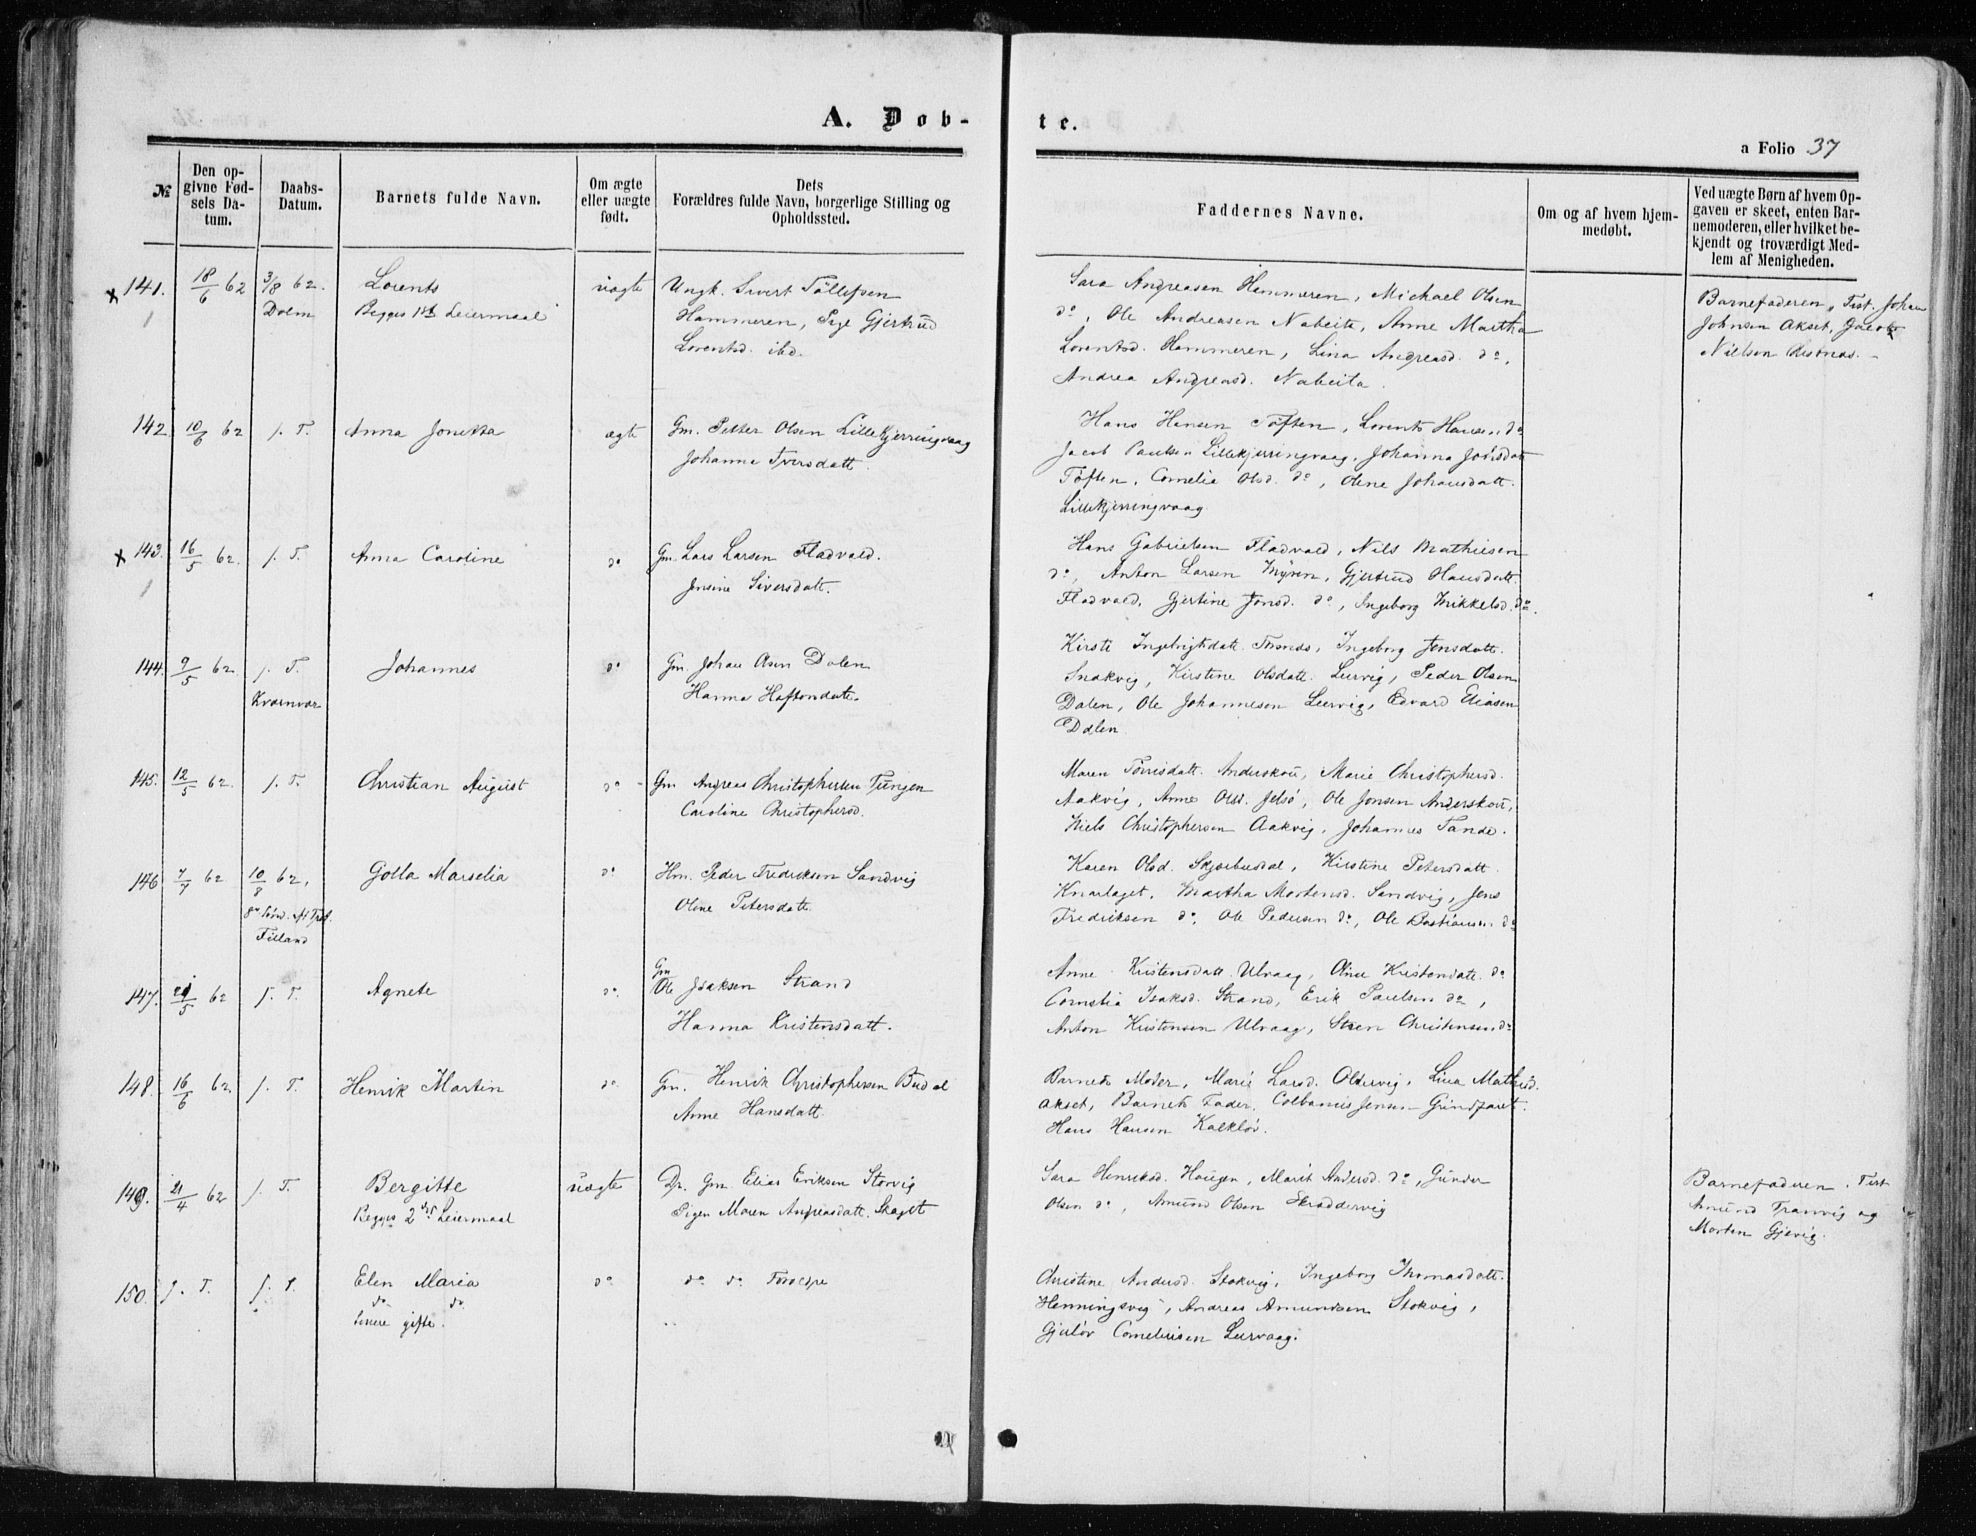 A. Döb- te.
a Folio 37
№
Den op-
givne Fød-
sels Da-
tum.
Daabs-
Datum.
Barnets fulde Navn.
Om ægte
eller uægte
født.
Dets
Forældres fulde Navn, borgerlige Stilling og
Opholdssted.
Faddernes Navne.
Om og af hvem hjem-
medøbt.
Ved uægte Børn af hvem Op-
gaven er skeet, enten Bar-
nemoderen, eller hvilket be-
kjendt og troværdigt Med-
lem af Menigheden.
x 141. 18/6 62 3/8 62. Lorents uægte Ungk. Sivert Tøllefsen
Dolm Begges 1ste Leiermaal Hammeren, Pige Gjertrud
Lorentsd. ibd.
Sara Andreasen Hammeren, Michael Olsen
do, Ole Andreasen Nabeita, Anne Martha
Lorentsd. Hammeren, Lina Andreasd. do,
Andrea Andreasd. Nabeita.
Barnefaderen, Test. Johan
Johnsen Akset, Jacob
Nielsen
142 10/6 62 s. T. Anna Jonetta ægte Gm. Petter Olsen Lillekjerringvaag
Johanna Iversdatt.
Hans Hansen Töften, Lorents Hansen do
Jacob Paulsen Lillekjerringvaag, Johanna
Töften, Cornelia Olsd. do, Oline Johansdatt.
Lillekjerringvaag
x 143. 16/5 62. s. T. Anna Caroline do Gm. Lars Larsen Fladvald.
Jensine Siversdatt.
Hans Gabrielsen Fladvald, Nils Mathiesen
do, Anton Larsen Myren, Gjertrud Hansdatt.
Fladvald, Gjertine Jonsd. do, Ingeborg Mikkelsd. do.
144. 9/5 62 s. T. Johannes do Gm. Johan Dalen
Kvænvær Hanna Haftondatt.
Kirsti Ingebrigtsdatt. Ingeborg Jensdatt.
Snakvig, Kirstine Olsdatt. Leirvig, Peder Olsen
Dalen, Ole Johannesen Leervig, Edvard Eliasen
Dalen
145. 12/5 62. s. T. Christian August do Gm Andreas Christophersen
Caroline Christophersd.
Maren Anderskou, Marie Christophersd.
Aakvig, Anne Olsd. Jelsö, Ole Jonsen Anderskou,
Niels Christophersen Aakvig, Johannes Sande.
146 7/7 62 10/8 62, Golla Marselia do Hm. Peder Fredriksen Sandvig
8de Sönd. Oline Petersdatt.
Filland
Karen Olsd. Kirstine Petersdatt.
Knarlaget, Martha Mortensd. Sandvig, Jens
Fredriksen do, Ole Pedersen do, Ole Bastiansen do
147. 21/5 62 s. T. Agnete do Gm Ole Isaksen Strand
Hanna Kristensdatt.
Anne Kristensdatt. Ulvaag, Oline Kristendatt. do
Cornelia Isaksd. Strand, Erik Paulsen do,
Anton Kristensen Ulvaag, Sten Christensen do
148. 16/6 62 s. T. Henrik Martin do Gm. Henrik Christophersen Budal
Anne Hansdatt.
Barnets Moder, Marie Larsd. Oldervig, Lina
Akset, Barnets Fader, Colbanus Jensen Grindfaret.
Hans Hansen Kalkløv.
149. 21/4 62 s. T. Bergitte uægte Gm. Elias Eriksen Storvig
Begges 2det Leiermaal Pigen Maren Andreasdatt. Skaget
Sara Henriksd. Haugen, Marit Andersd. do, Gunder
Olsen do, Amund Olsen Skroddervig
Barnefaderen. Test
Amund Tranvig og
Morten Gjevig.
150. s. T. s. T. Elen Maria do do do
do do
gifte.
Christine Andersd. Stokvig, Ingeborg Thomasdatt.
Henningsvig, Andreas Amundsen Stokvig,
Cornelius­en Leervaag.